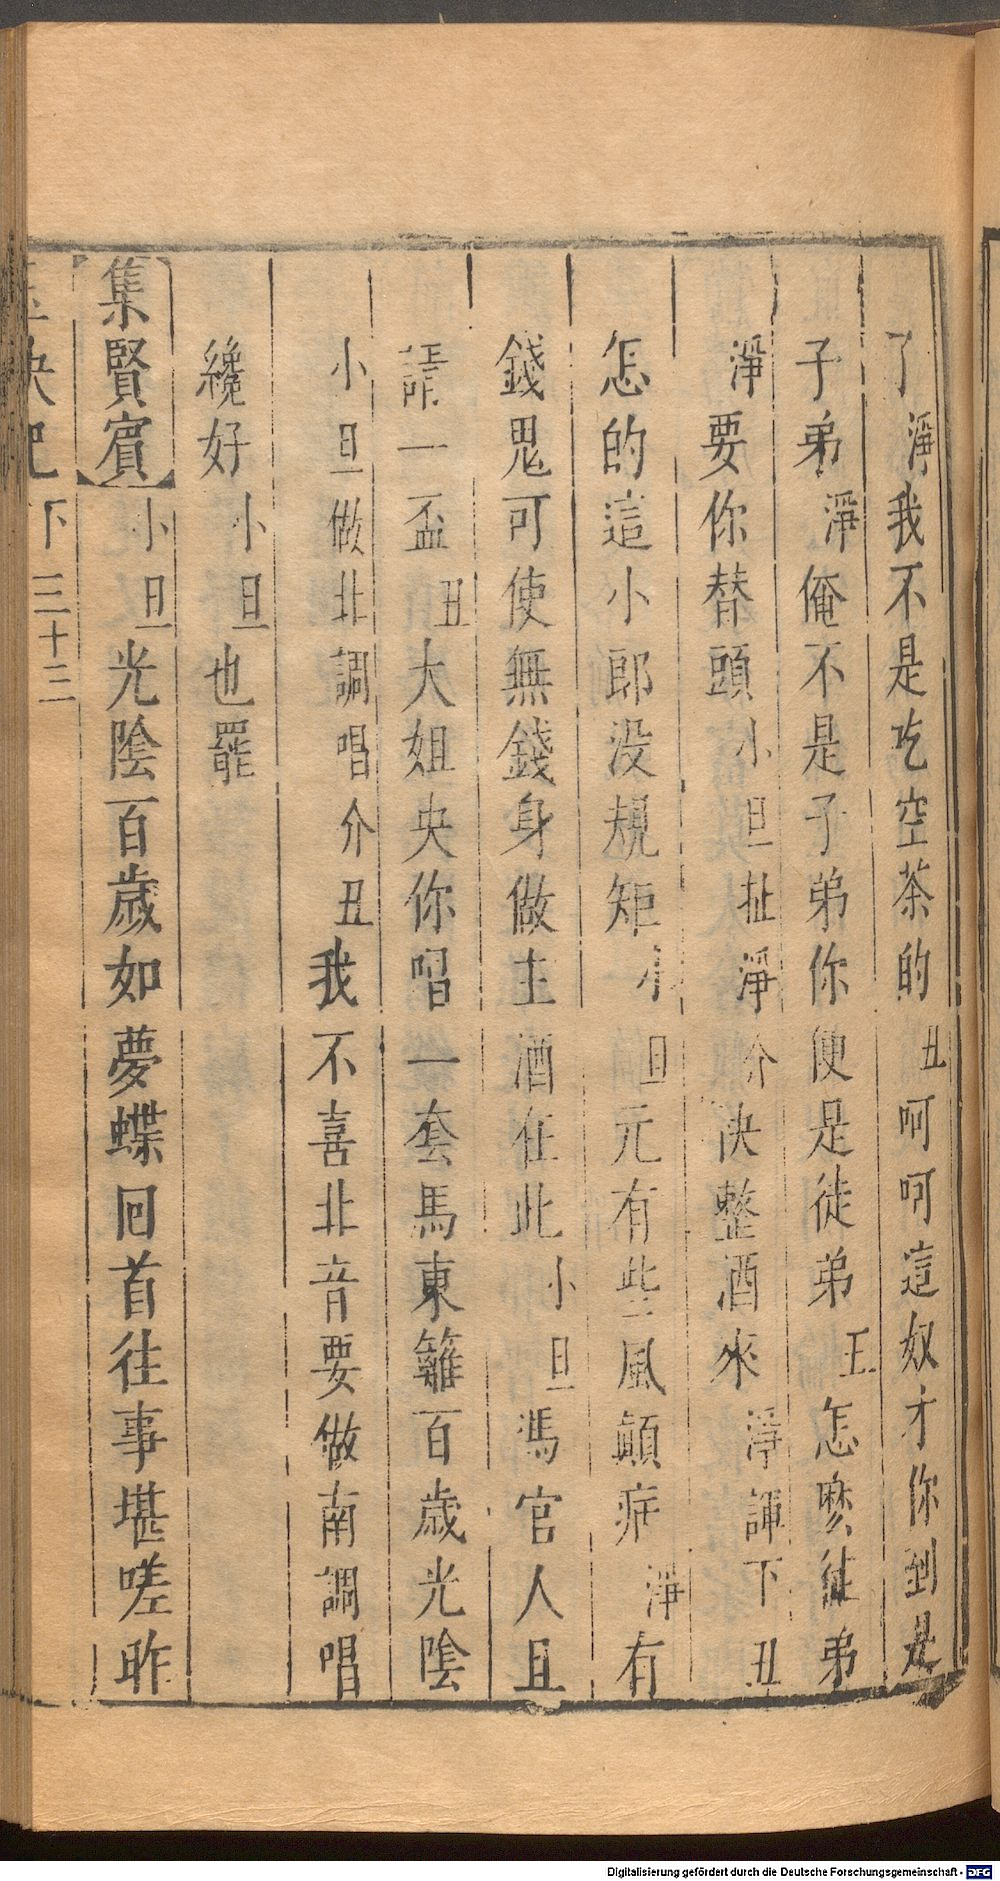 了淨我不是吃空茶的丑呵呵這奴才你到是
子弟淨俺不是子弟你便是徒弟王怎麽徒弟
淨要你替頭小旦扯淨介決整酒來淨諢下丑
怎的這小郎没規矩小旦元有些風顛症淨有
錢鬼可使無錢身做主酒在此小旦馮官人且
請一盃丑大姐央你唱一套馬東籬百歲光陰
小旦做北調唱介丑我不喜北音要做南調唱
纔好小旦也罷
集賢賓小旦光陰百歲如夢蝶回首往事堪嗟昨
玉玦記下三十三
Digitalisierung gefördert durch die Deutsche Forschungsgemeinschaft - DFG